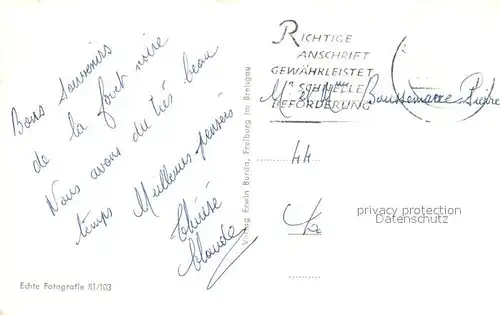 Bons Souvenirs
de la foret noire
Nous avons du très beau
temps Meilleures pensées
Thérèse
Claude
Echte Fotografie 81/103
Verlag Erwin Burda, Freiburg im Breisgau
RICHTIGE
ANSCHRIFT
GEWÄHRLEISTET
SCHNELLE
BEFÖRDERUNG
44
privacy protection
Datenschutz